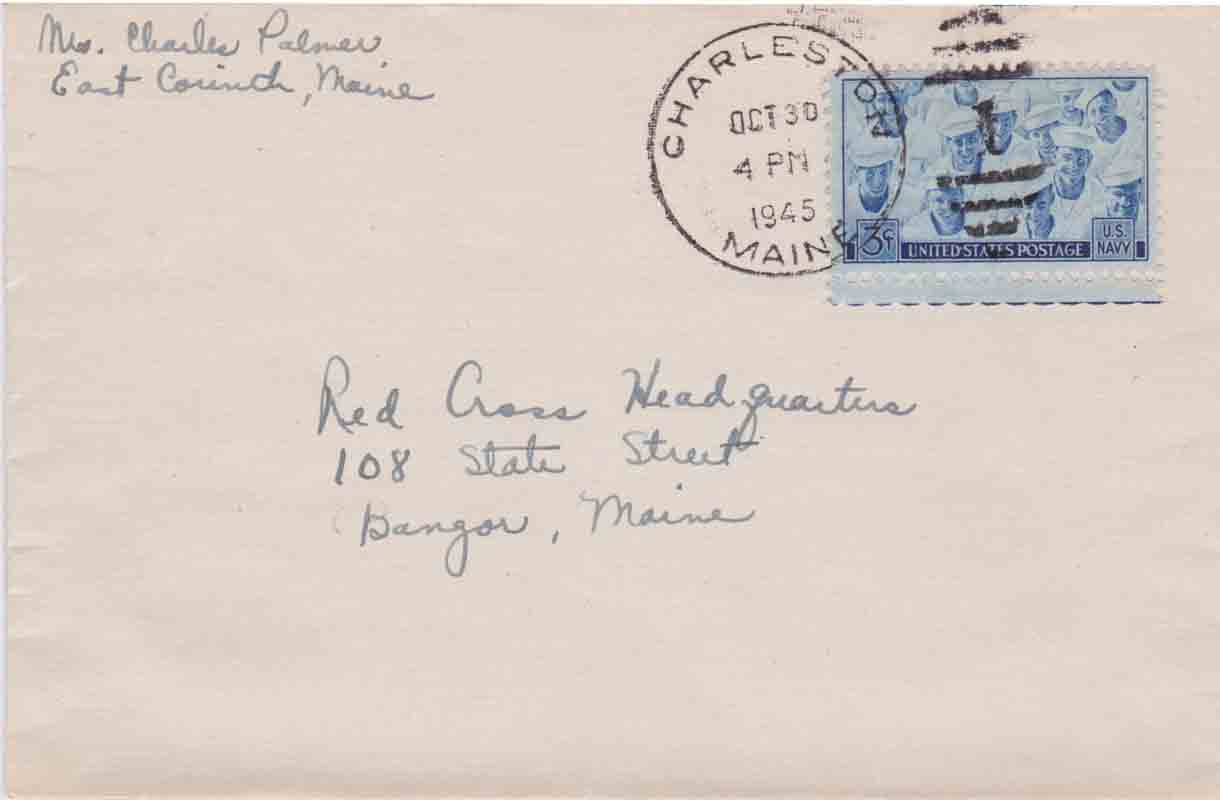 Mrs. Charles Palmer
East Corinth, Maine
CHARLESTON
OCT 30
4 PM
1945
MAINE
1
3¢
UNITED STATES POSTAGE
U.S.
NAVY
Red Cross Headquarters
108 State Street
Bangor, Maine